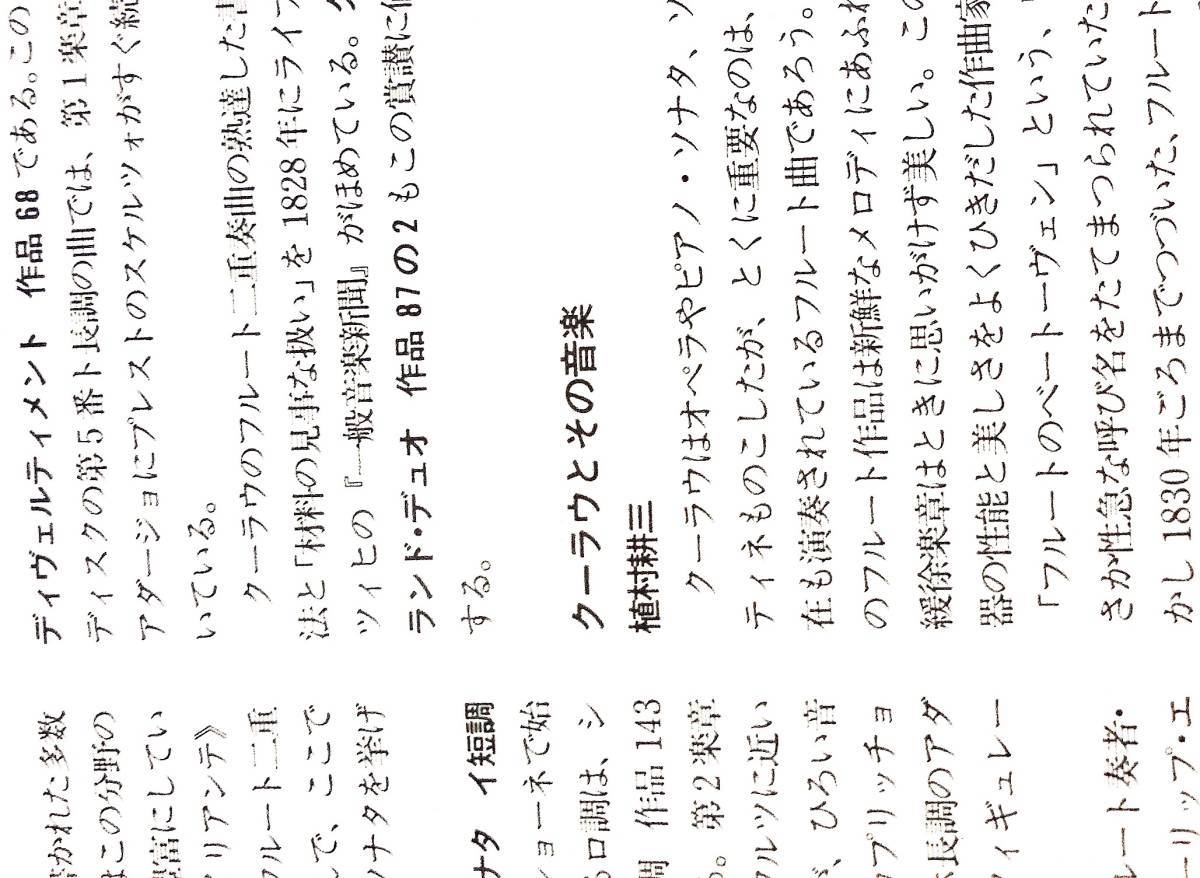 かれた多数
はこの分野の
富にしてい
リアンテ》
フルート二重
して、ここで
ソナタを挙げ
ナタ イ短調
ョーネで始
ロ調は、シ
調 作品 143
。 第2楽章
ワルツに近い
、ひろい音
カプリッチョ
長調のアダ
ィギュレー
ルート奏者・
ーリップ・エ
ディヴェルティメント 作品 68 である。この
ディスクの第5番ト長調の曲では、第1楽章
アダージョにプレストのスケルツォがすぐ続
いている。
クーラウのフルート二重奏曲の熟達した書
法と「材料の見事な扱い」を 1828 年にライプ
ツィヒの『一般音楽新聞』がほめている。グ
ランド・デュオ 作品 87 の 2 もこの賞讃に値
する。
クーラウとその音楽
植村耕三
クーラウはオペラやピアノ・ソナタ、ソ
ティネものこしたが、とくに重要なのは、
在も演奏されているフルート曲であろう。
のフルート作品は新鮮なメロディにあふれ
緩徐楽章はときに思いがけず美しい。この
器の性能と美しさをよくひきだした作曲家
「フルートのベートーヴェン」という、
さか性急な呼び名をたてまつられていた
かし 1830 年ごろまでつづいた、フルート